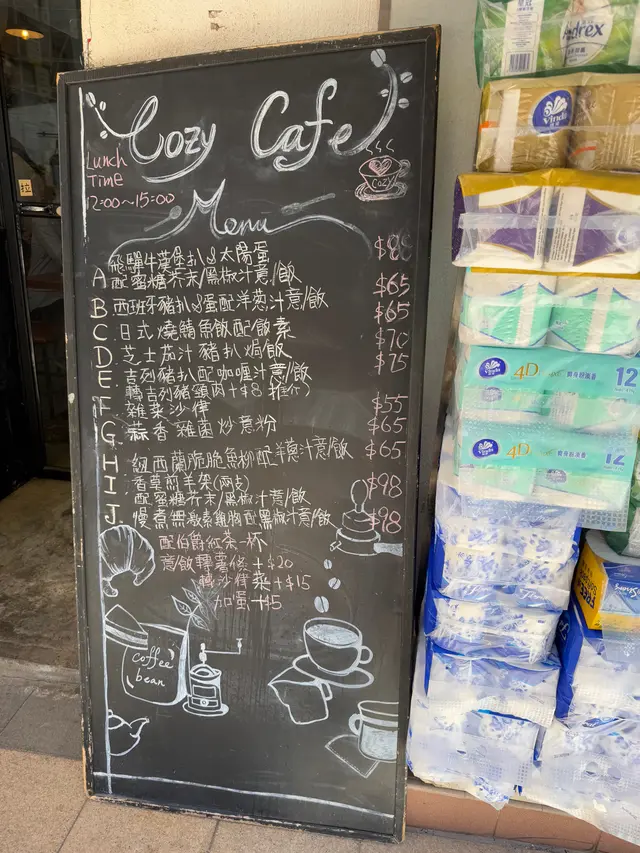 Cozy Cafe
Lunch
Time
12:00~15:00
COZY
Menu
飛驒牛漢堡扒&太陽蛋
A 配蜜糖芥末/黑椒汁意/飯 $88
B 西班牙豬扒&蛋配洋葱汁意/飯 $65
C 日式燒鯖魚飯配飯素 $65
D 芝士茄汁豬扒焗飯 $70
E 吉列豬扒配咖喱汁意/飯 $75
轉吉列豬頸肉+$8 推介)
F 雜菜沙律 $55
G 蒜香雜菌炒意粉 $65
H 紐西蘭脆脆魚柳配洋葱汁意/飯 $65
I 香草煎羊架(兩支)
配蜜糖芥末/黑椒汁意/飯 $98
J 慢煮無激素雞胸配黑椒汁意/飯 $98
配伯爵紅茶一杯
意/飯轉薯條+$20
轉沙律菜+$15
加蛋+$5
coffee
bean
拉
Vinda
4D
12
Vinda
4D
12
FREE